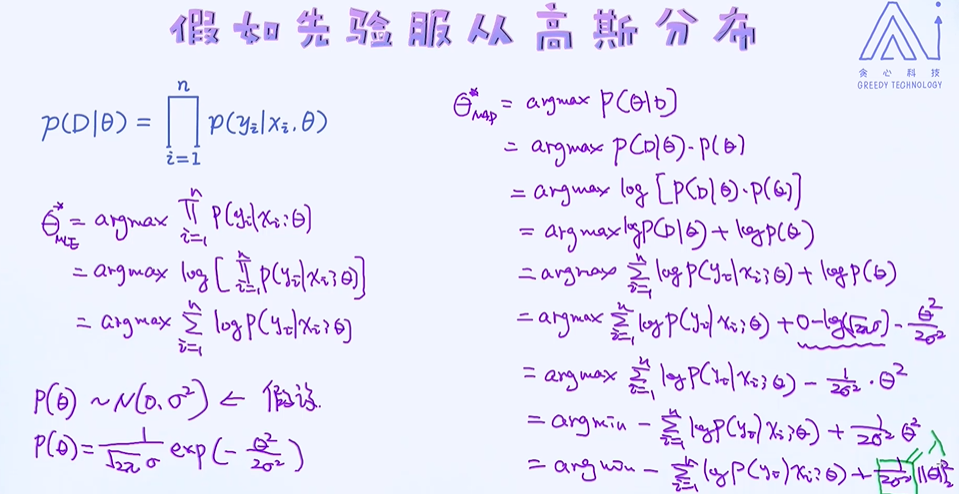 假如先验服从高斯分布
贪心科技
GREEDY TECHNOLOGY
p(D|θ) = ∏_{i=1}^{n} p(y_i|x_i, θ)
θ*_MLE = argmax ∏_{i=1}^{n} P(y_i|x_i; θ)
= argmax log [∏_{i=1}^{n} P(y_i|x_i; θ)]
= argmax Σ_{i=1}^{n} log P(y_i|x_i; θ)
P(θ) ~ N(0, σ²) ← 假设.
P(θ) = 1/(√2π σ) exp(-θ²/2σ²)
θ*_MAP = argmax P(θ|D)
= argmax P(D|θ)·P(θ)
= argmax log [P(D|θ)·P(θ)]
= argmax log P(D|θ) + log P(θ)
= argmax Σ_{i=1}^{n} log P(y_i|x_i; θ) + log P(θ)
= argmax Σ_{i=1}^{n} log P(y_i|x_i; θ) + 0 - log(√2π σ) - θ²/2σ²
= argmax Σ_{i=1}^{n} log P(y_i|x_i; θ) - 1/2σ² · θ²
= argmin - Σ_{i=1}^{n} log P(y_i|x_i; θ) + 1/2σ² θ²
= argmin - Σ_{i=1}^{n} log P(y_i|x_i; θ) + 1/2σ² ||θ||²_2
λ